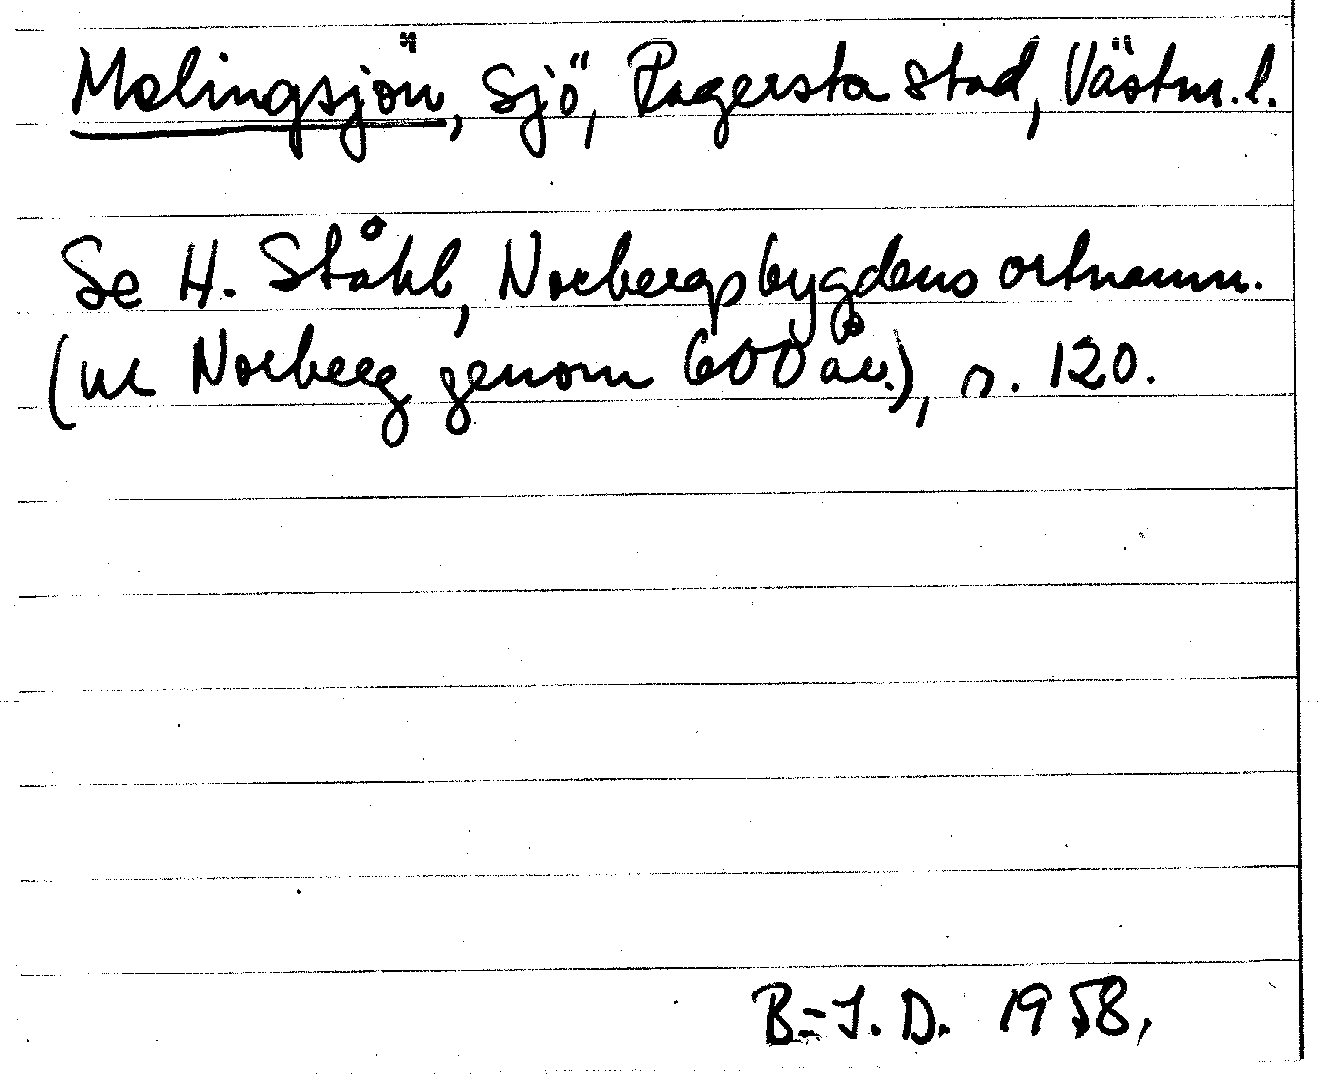 Malingsjön, Sjö, Fagersta stad, Västm. l.
Se H. Ståhl, Norbergsbygdens ortnamn.
(ur Norberg genom 600 år.), s. 120.
B-I. D. 1958.